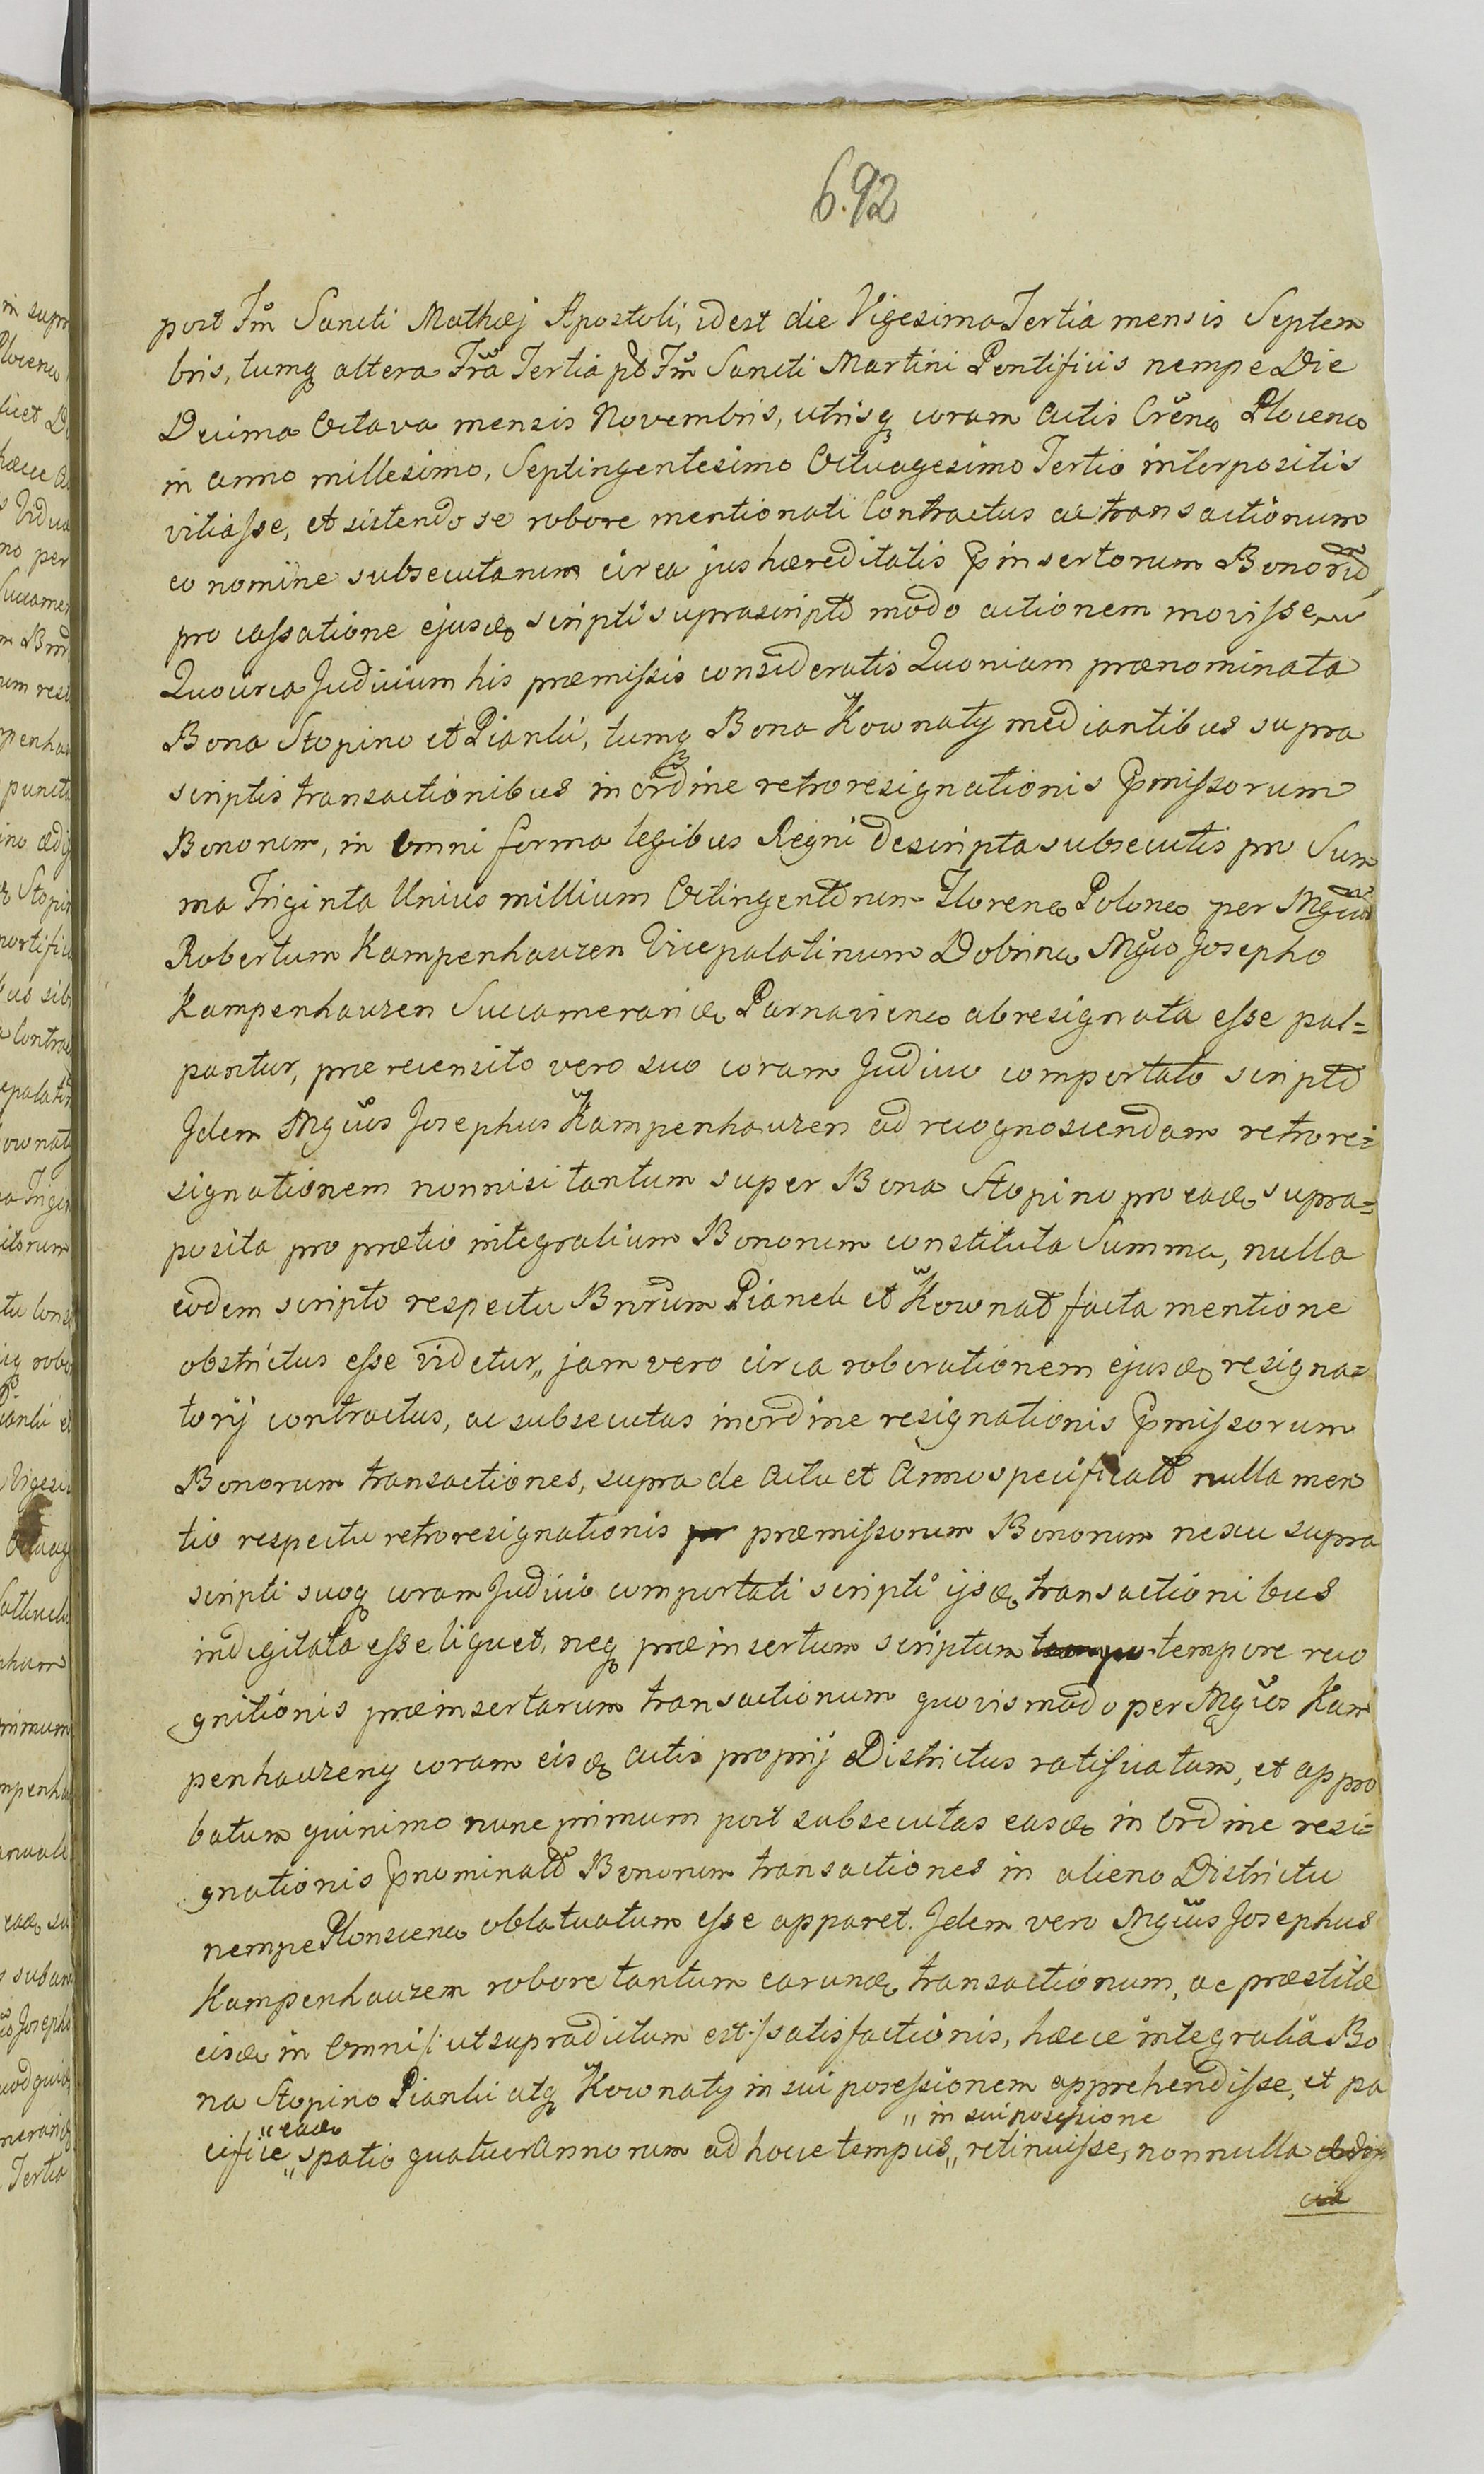 692
post Fm̃ Sancti Mathæj Apostoli, idest die Vigesima Tertia mensis Septem
bris, tumq altera Fr̃a Tertia pt Fm̃ Sancti Martini Pontificis nempe Die
Decima Octava mensis Novembris, utrisq coram Actis Cr̃eng Plocen
in anno millesimo, Septingentesimo Octuagesimo Tertio interpositis
vitiasse, et sistendo se robore mentionati Contractus ac transactionum
eo nomine subsecutarum circa jus hæreditatis pinsertorum Bonorũ
pro cassatione ejusd scripti suprascripto modo actionem movisse,
Quocirca Judicium his præmissis consideratis Quoniam prænominata
Bona Stopino et Pianki, tumq Bona Kownaty mediantibus supra
scriptis transactionibus in ordine retroresignationis pmissorum
Bonorum, in Omni forma legibus Regni descripta subsecutis pro Sum
ma Triginta Unius millium Octingentorum Floren Polon per Mgcũ
Robertum Kampenhauzen Vicepalatinum Dobrin Mgco Josepho
Kampenhauzen Succamerarid Parnavien abresignata esse pal=
pantur, prærecensito vero suo coram Judicio comportato scripto
Jdem Mgcus Josephus Kampenhauzen ad recognoscendam retrore=
signationem nonnisi tantum super Bona Stopino pro ead supra=
posita pro prætio integralium Bonorum constituta Summa, nulla
eodem scripto respectu Bnrum Pianek et Kownat facta mentione
obstrictus esse videtur,, jam vero circa roborationem ejusd resigna=
torij contractus, ac subsecutas in ordine resignationis pmissorum
Bonorum transactiones, supra de Actu et Anno specificatõ nulla men
tio respectu retroresignationis pr præmissorum Bonorum nexu supra
scripti suoq coram Judicio comportati scripti ijsd transactionibus
indigitata esse liquet, neq præinsertum scriptum tempore reco
gnitionis præinsertarum transactionum quovismodo per Mgcos Kam
penhauzeny coram eisd Actis proprij Districtus ratificatum, et appro
batum quinimo nunc primum post subsecutas easd in Ordine resi=
gnationis pnominatõ Bonorum transactiones in alieno Districtu
nempe Plonscien oblatuatum esse apparet. Jdem vero Mgcus Josephus
Kampenhauzem robore tantum earund transactionum, ac præstitæ
eisd in Omni /: ut supradictum est :/ satisfactionis, hæcce integralia Bo
na Stopino Pianki atq Kownaty in sui posessionem apprehendisse, et pa
,, ead ,, in sui posessione
cifice ,, spatio quatuor Annorum ad hocce tempus ,, retinuisse, nonnulla ædifi
cia